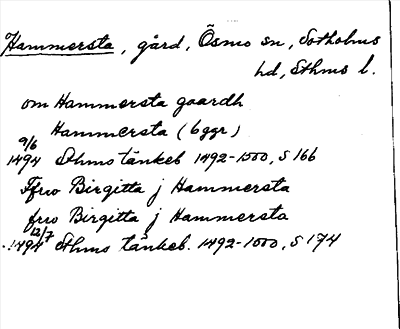 Hammersta, gård, Ösmo sn, Sotholms
hd, Sthms l.
om Hammersta gaardh
Hammersta (6 ggr)
9/6
1494 Sthms tänkeb 1492-1500, S 166
Ffrw Birgitta j Hammersta
frw Birgitta j Hammersta
12/7
1494 Sthms tänkeb. 1492-1500, S 174